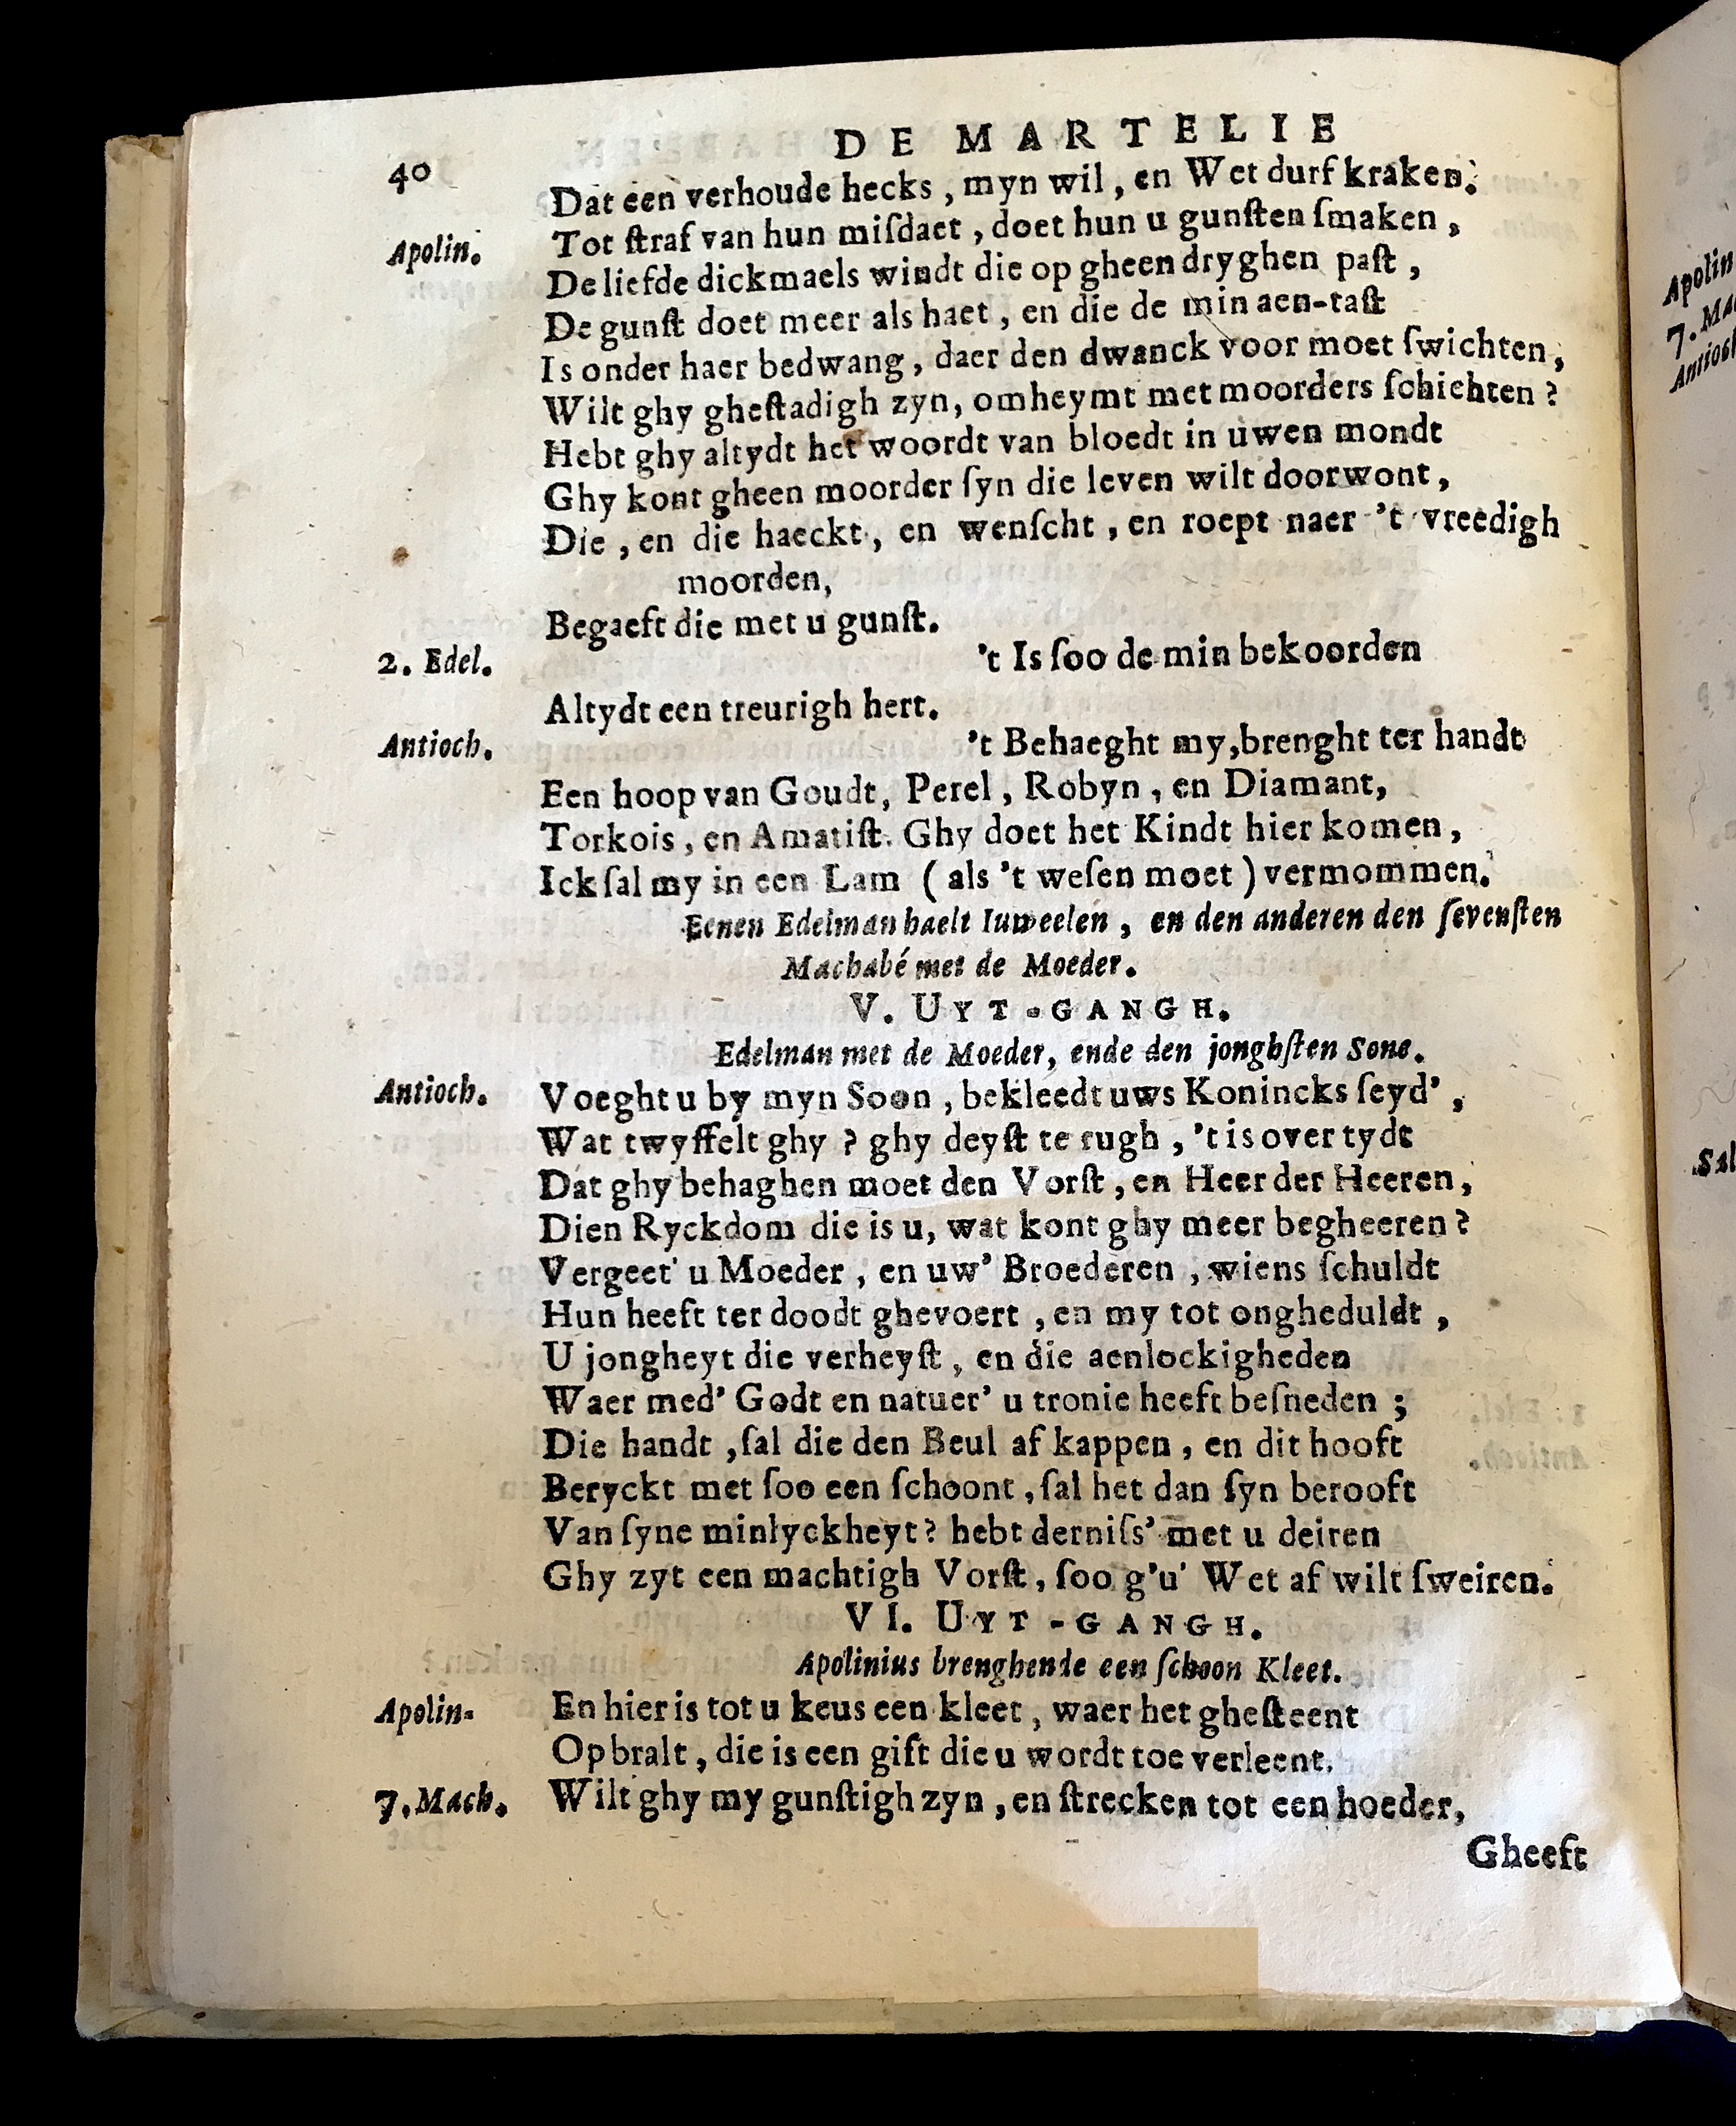 DE MARTELIE
40
Dat een verhoude hecks, myn wil, en Wet durf kraken.
Apolin. Tot ſtraf van hun miſdaet, doet hun u gunſten ſmaken,
De liefde dickmaels windt die op gheen dryghen paſt,
De gunſt doet meer als haet, en die de min aen-taſt
Is onder haer bedwang, daer den dwanck voor moet ſwichten,
Wilt ghy gheſtadigh zyn, omheymt met moorders ſchichten?
Hebt ghy altydt het woordt van bloedt in uwen mondt
Ghy kont gheen moorder ſyn die leven wilt doorwont,
Die, en die haeckt, en wenſcht, en roept naer 't vreedigh
moorden,
Begaeft die met u gunſt.
2. Edel. 't Is ſoo de min bekoorden
Altydt een treurigh hert.
Antioch. 't Behaeght my, brenght ter handt
Een hoop van Goudt, Perel, Robyn, en Diamant,
Torkois, en Amatiſt. Ghy doet het Kindt hier komen,
Ick ſal my in een Lam (als 't weſen moet) vermommen.
Eenen Edelman haelt Iuweelen, en den anderen den ſevenſten
Machabé met de Moeder.
V. UYT-GANGH.
Edelman met de Moeder, ende den jonghſten Sone.
Antioch. Voeght u by myn Soon, bekleedt uws Konincks ſeyd',
Wat twyffelt ghy? ghy deyſt te rugh, 't is over tydt
Dat ghy behaghen moet den Vorſt, en Heer der Heeren,
Dien Ryckdom die is u, wat kont ghy meer begheeren?
Vergeet' u Moeder, en uw' Broederen, wiens ſchuldt
Hun heeft ter doodt ghevoert, en my tot ongheduldt,
U jongheyt die verheyſt, en die aenlockigheden
Waer med' Godt en natuer' u tronie heeft beſneden;
Die handt, ſal die den Beul af kappen, en dit hooft
Beryckt met ſoo een ſchoont, ſal het dan ſyn berooft
Van ſyne minlyckheyt? hebt derniſs' met u deiren
Ghy zyt een machtigh Vorſt, ſoo g'u' Wet af wilt ſweiren.
VI. UYT-GANGH.
Apolinius brenghende een ſchoon Kleet.
Apolin- En hier is tot u keus een kleet, waer het gheſteent
Op bralt, die is een gift die u wordt toe verleent.
7. Mach. Wilt ghy my gunſtigh zyn, en ſtrecken tot een hoeder,
Gheeft
Apolin
7. Ma
Antioch
Sal